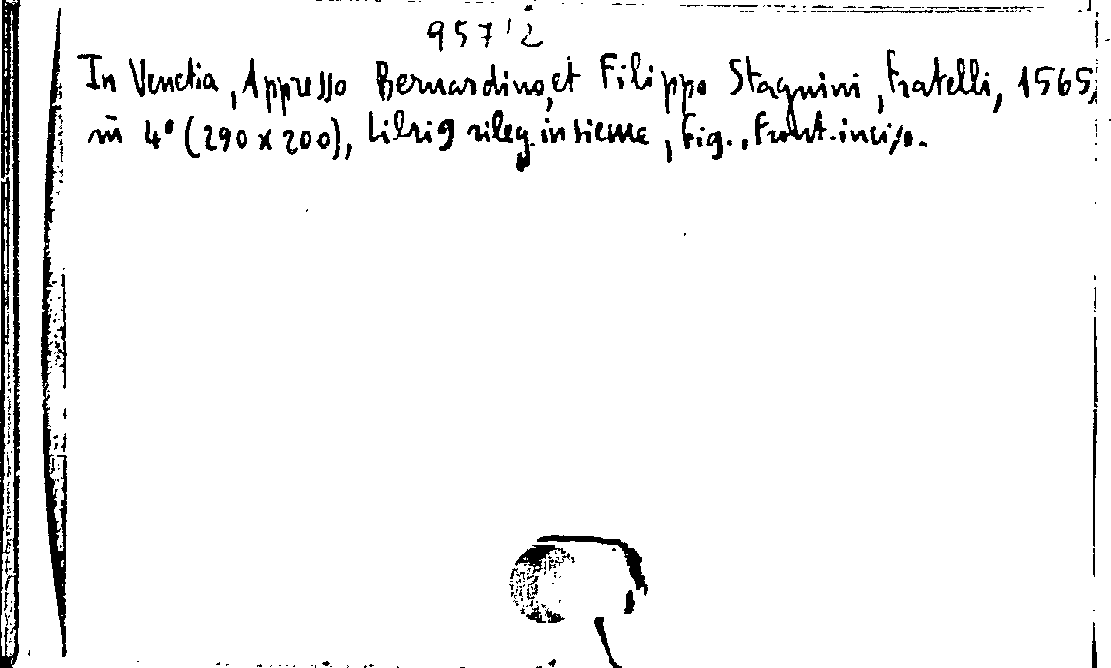 957'2
In Venetia, Appresso Bernardino, et Filippo Stagnini, Fratelli, 1565,
in 4° (290 x 200), Libri 9 rileg. insieme, Fig., Front. inciso.